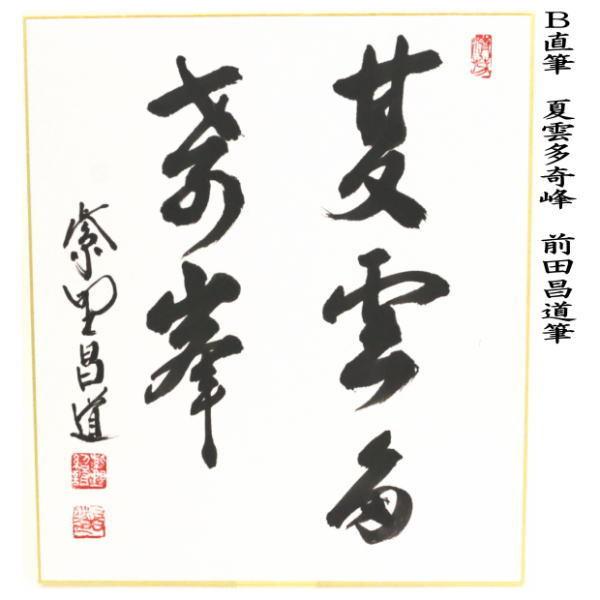 B直筆 夏雲多奇峰 前田昌道筆
夏雲多
奇峯
紫野昌道